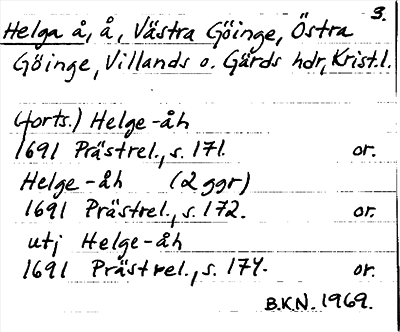 3.
Helga å, å, Västra Göinge, Östra
Göinge, Villands o. Gärds hdr, Krist.l.
(forts.) Helge-åh
1691 Prästrel., s. 171. or.
Helge-åh (2 ggr)
1691 Prästrel., s. 172. or.
utj Helge-åh
1691 Prästrel., s. 174. or.
B.K.N. 1969.